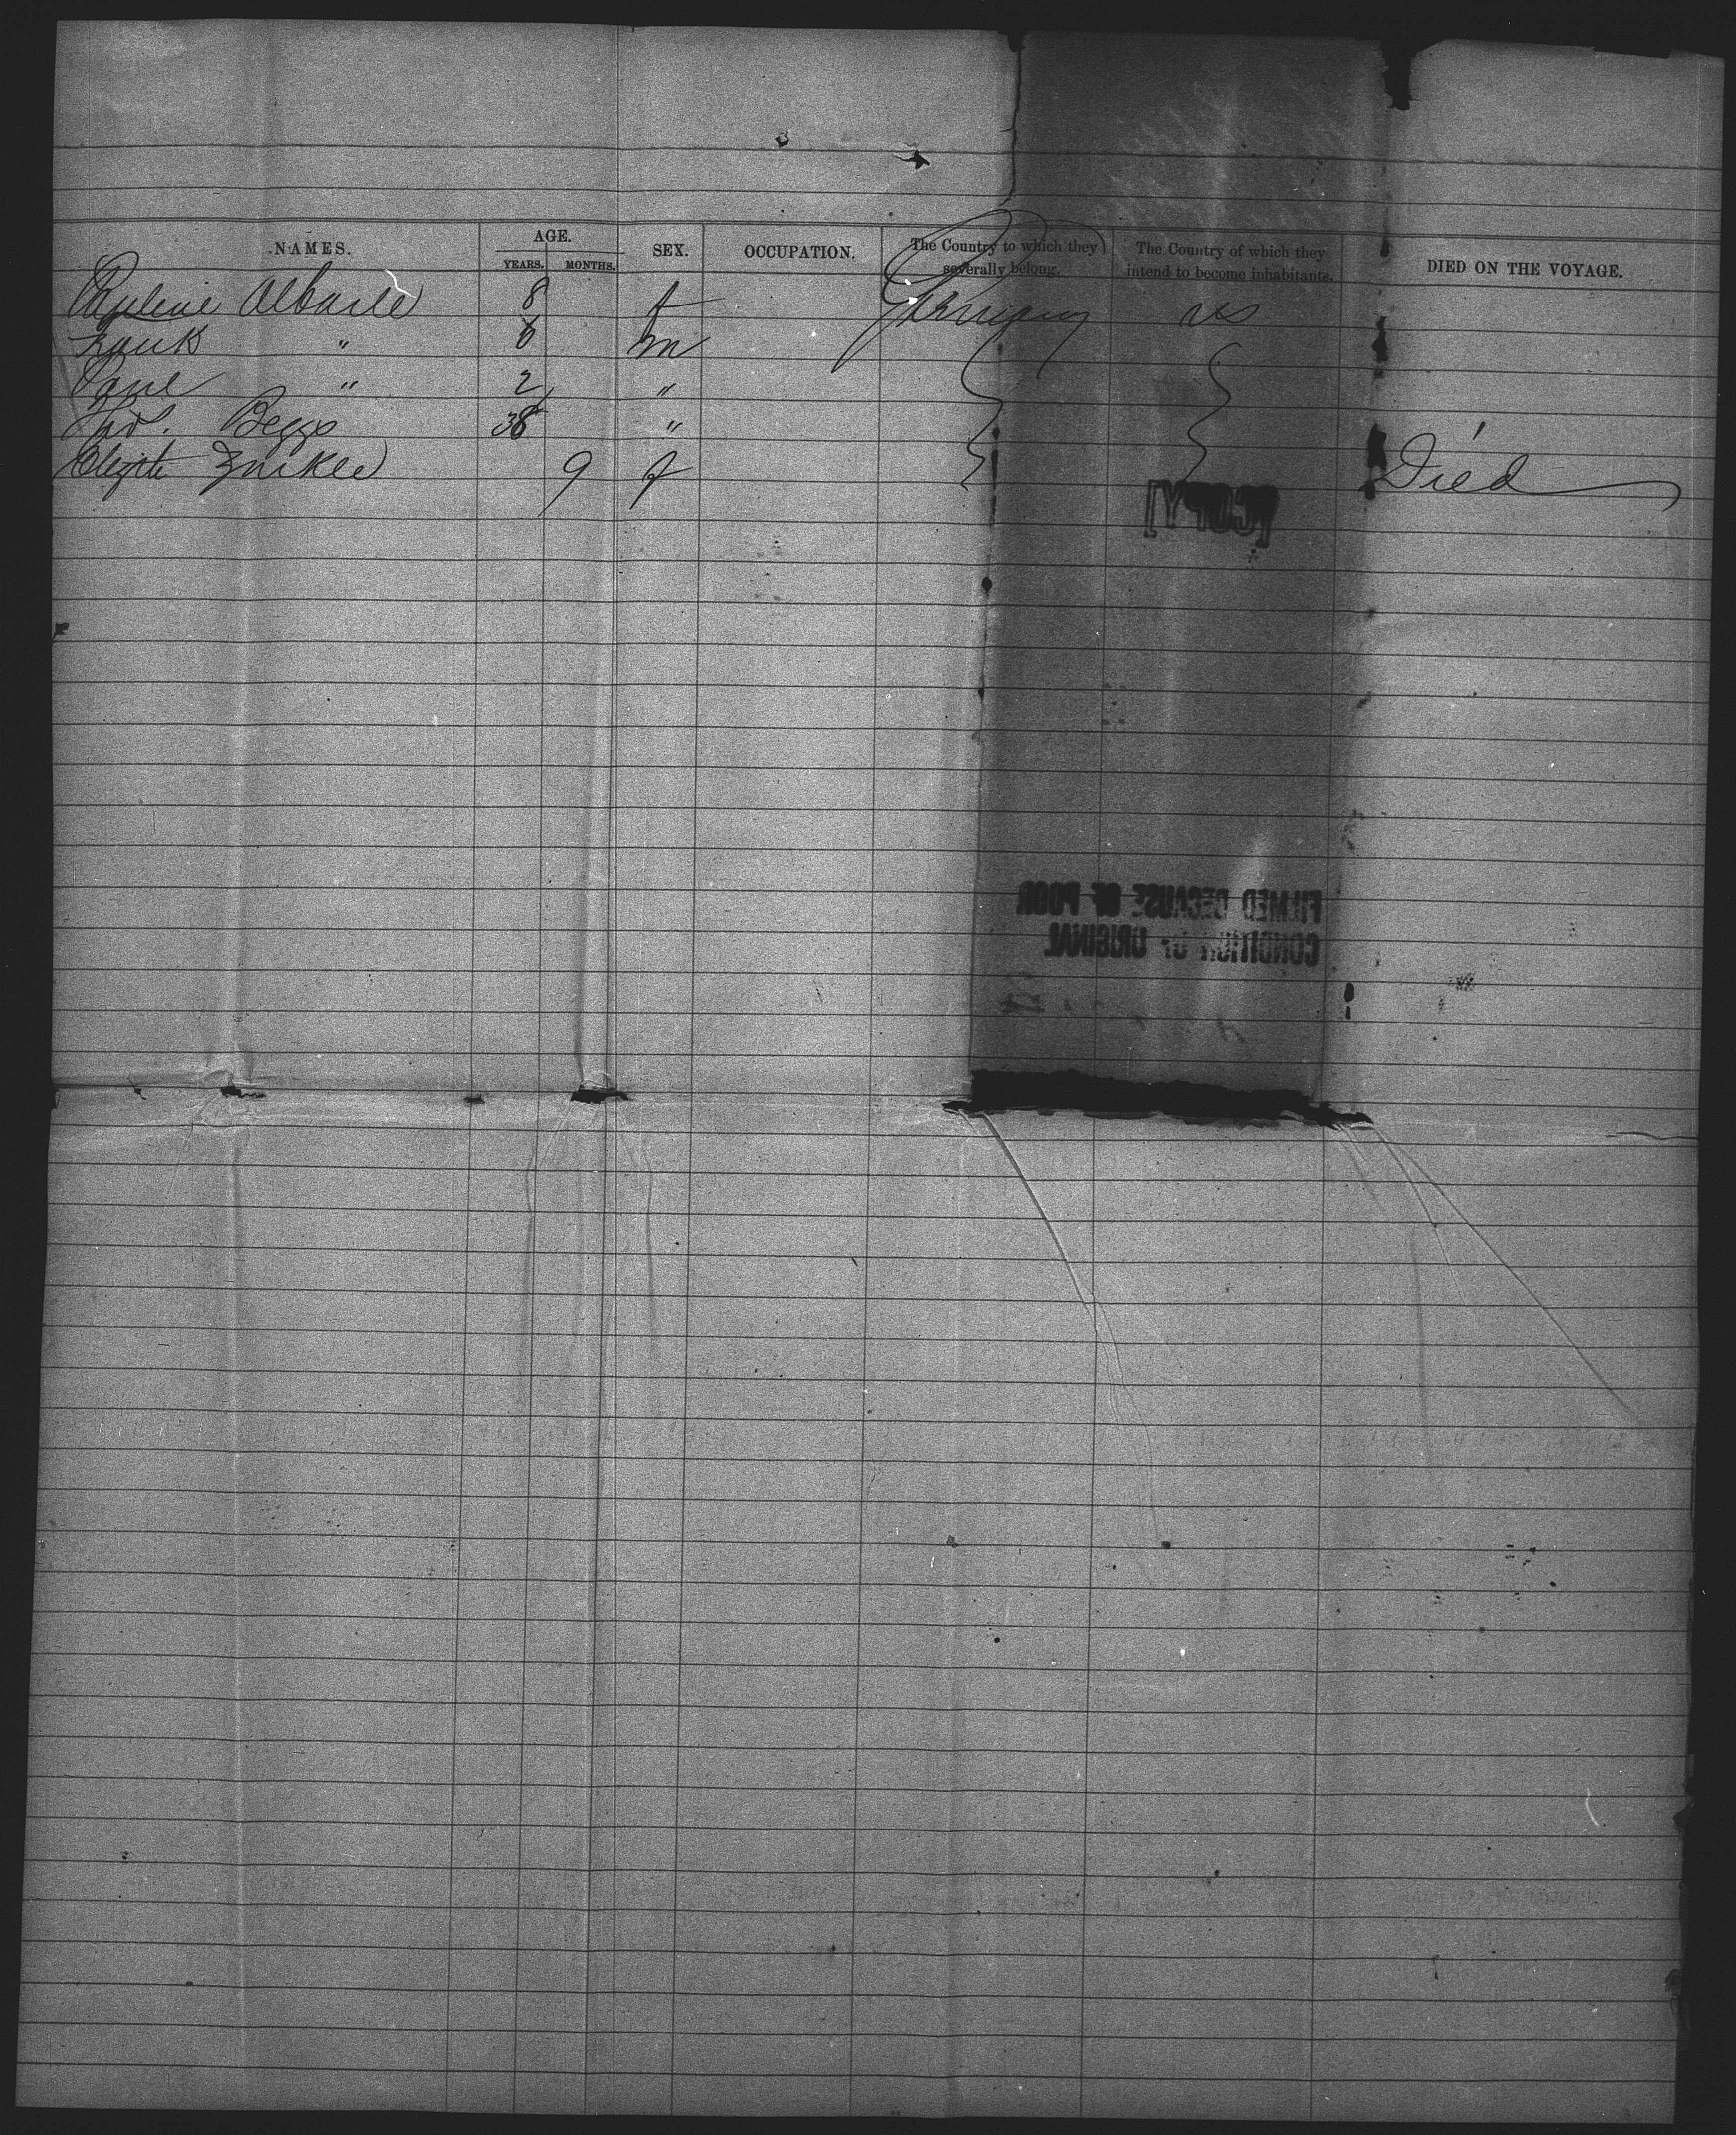 NAMES. AGE. SEX. OCCUPATION. The Country to which they severally belong. The Country of which they intend to become inhabitants. DIED ON THE VOYAGE.
YEARS. MONTHS.
Pauline Albarle 8 f Germany us
Frank " 6 m
" 2 "
Beggs 38 "
9 f Died
[COPY]
FILMED BECAUSE OF POOR
CONDITION OF ORIGINAL